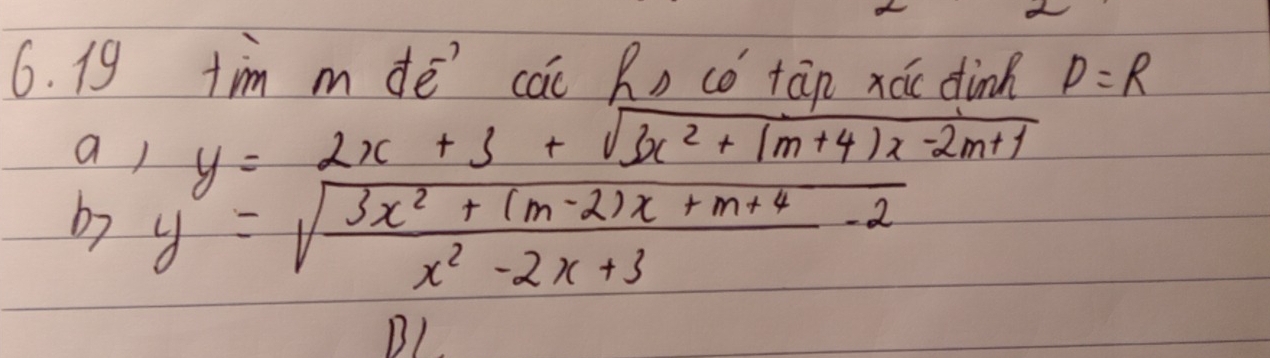 6.19 tìm m để các hs có tập xác định D=R
a, y = 2x + 3 + √(3x² + (m+4)x -2m+1)
b, y = √((3x² + (m-2)x + m+4)/(x² -2x+3) -2)
BL